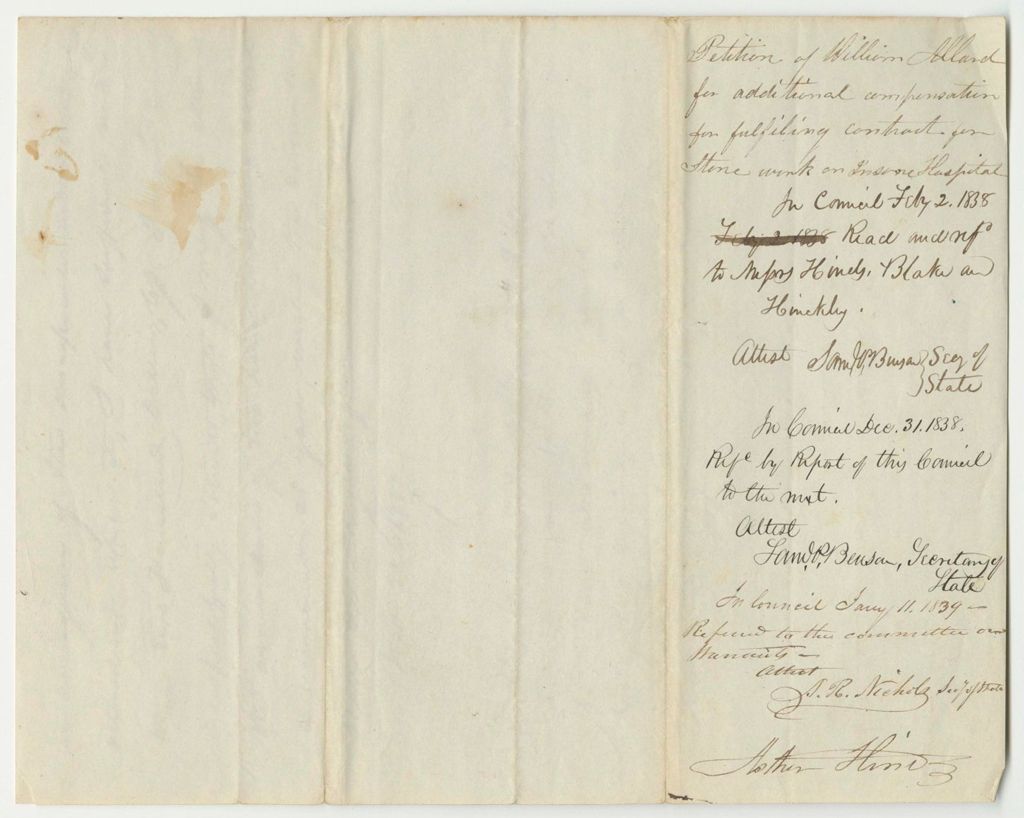 Petition of William Allard
for additional compensation
for fulfiling contract for
Stone work on Insane Hospital
In Council Feby 2. 1838
Feby 2 1838 Read and refd
to Messrs Hinds, Blake an
Hinckley.
Attest Saml P. Benson } Secy of
State
In Council Dec. 31. 1838.
Refd by Report of this Council
to the next.
Attest
Saml P. Benson, Secretary of
State
In Council Jany 11. 1839 —
Referred to the committee on
Warrants —
Attest
A. R. Nichols Secy of State